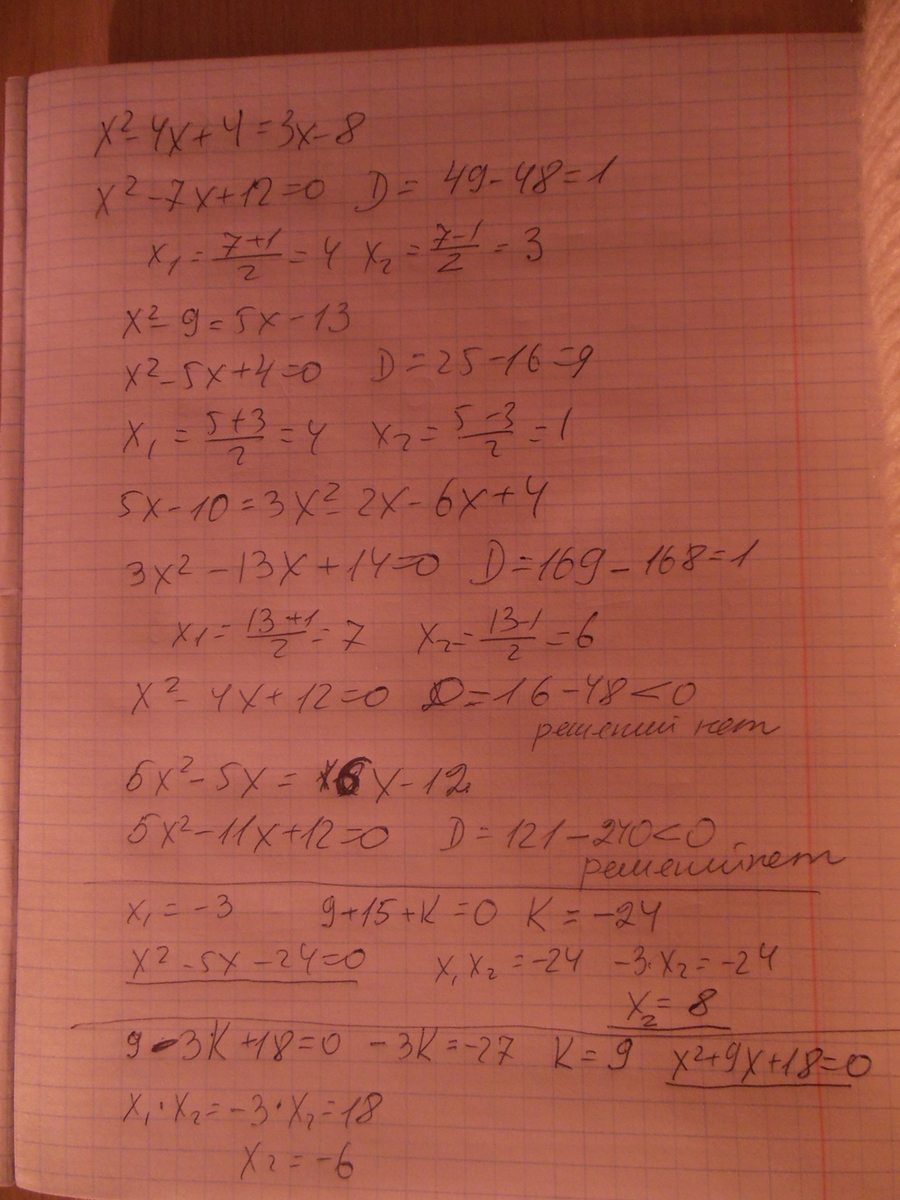 x² - 4x + 4 = 3x - 8
x² - 7x + 12 = 0 D = 49 - 48 = 1
x₁ = (7+1)/2 = 4 x₂ = (7-1)/2 = 3
x² - 9 = 5x - 13
x² - 5x + 4 = 0 D = 25 - 16 = 9
x₁ = (5+3)/2 = 4 x₂ = (5-3)/2 = 1
5x - 10 = 3x² - 2x - 6x + 4
3x² - 13x + 14 = 0 D = 169 - 168 = 1
x₁ = (13+1)/2 = 7 x₂ = (13-1)/2 = 6
x² - 4x + 12 = 0 D = 16 - 48 < 0
решений нет
5x² - 5x = 6x - 12
5x² - 11x + 12 = 0 D = 121 - 240 < 0
решений нет
x₁ = -3 9 + 15 + K = 0 K = -24
x² - 5x - 24 = 0 x₁x₂ = -24 -3·x₂ = -24
x₂ = 8
9 - 3K + 18 = 0 -3K = -27 K = 9 x² + 9x + 18 = 0
x₁·x₂ = -3·x₂ = 18
x₂ = -6